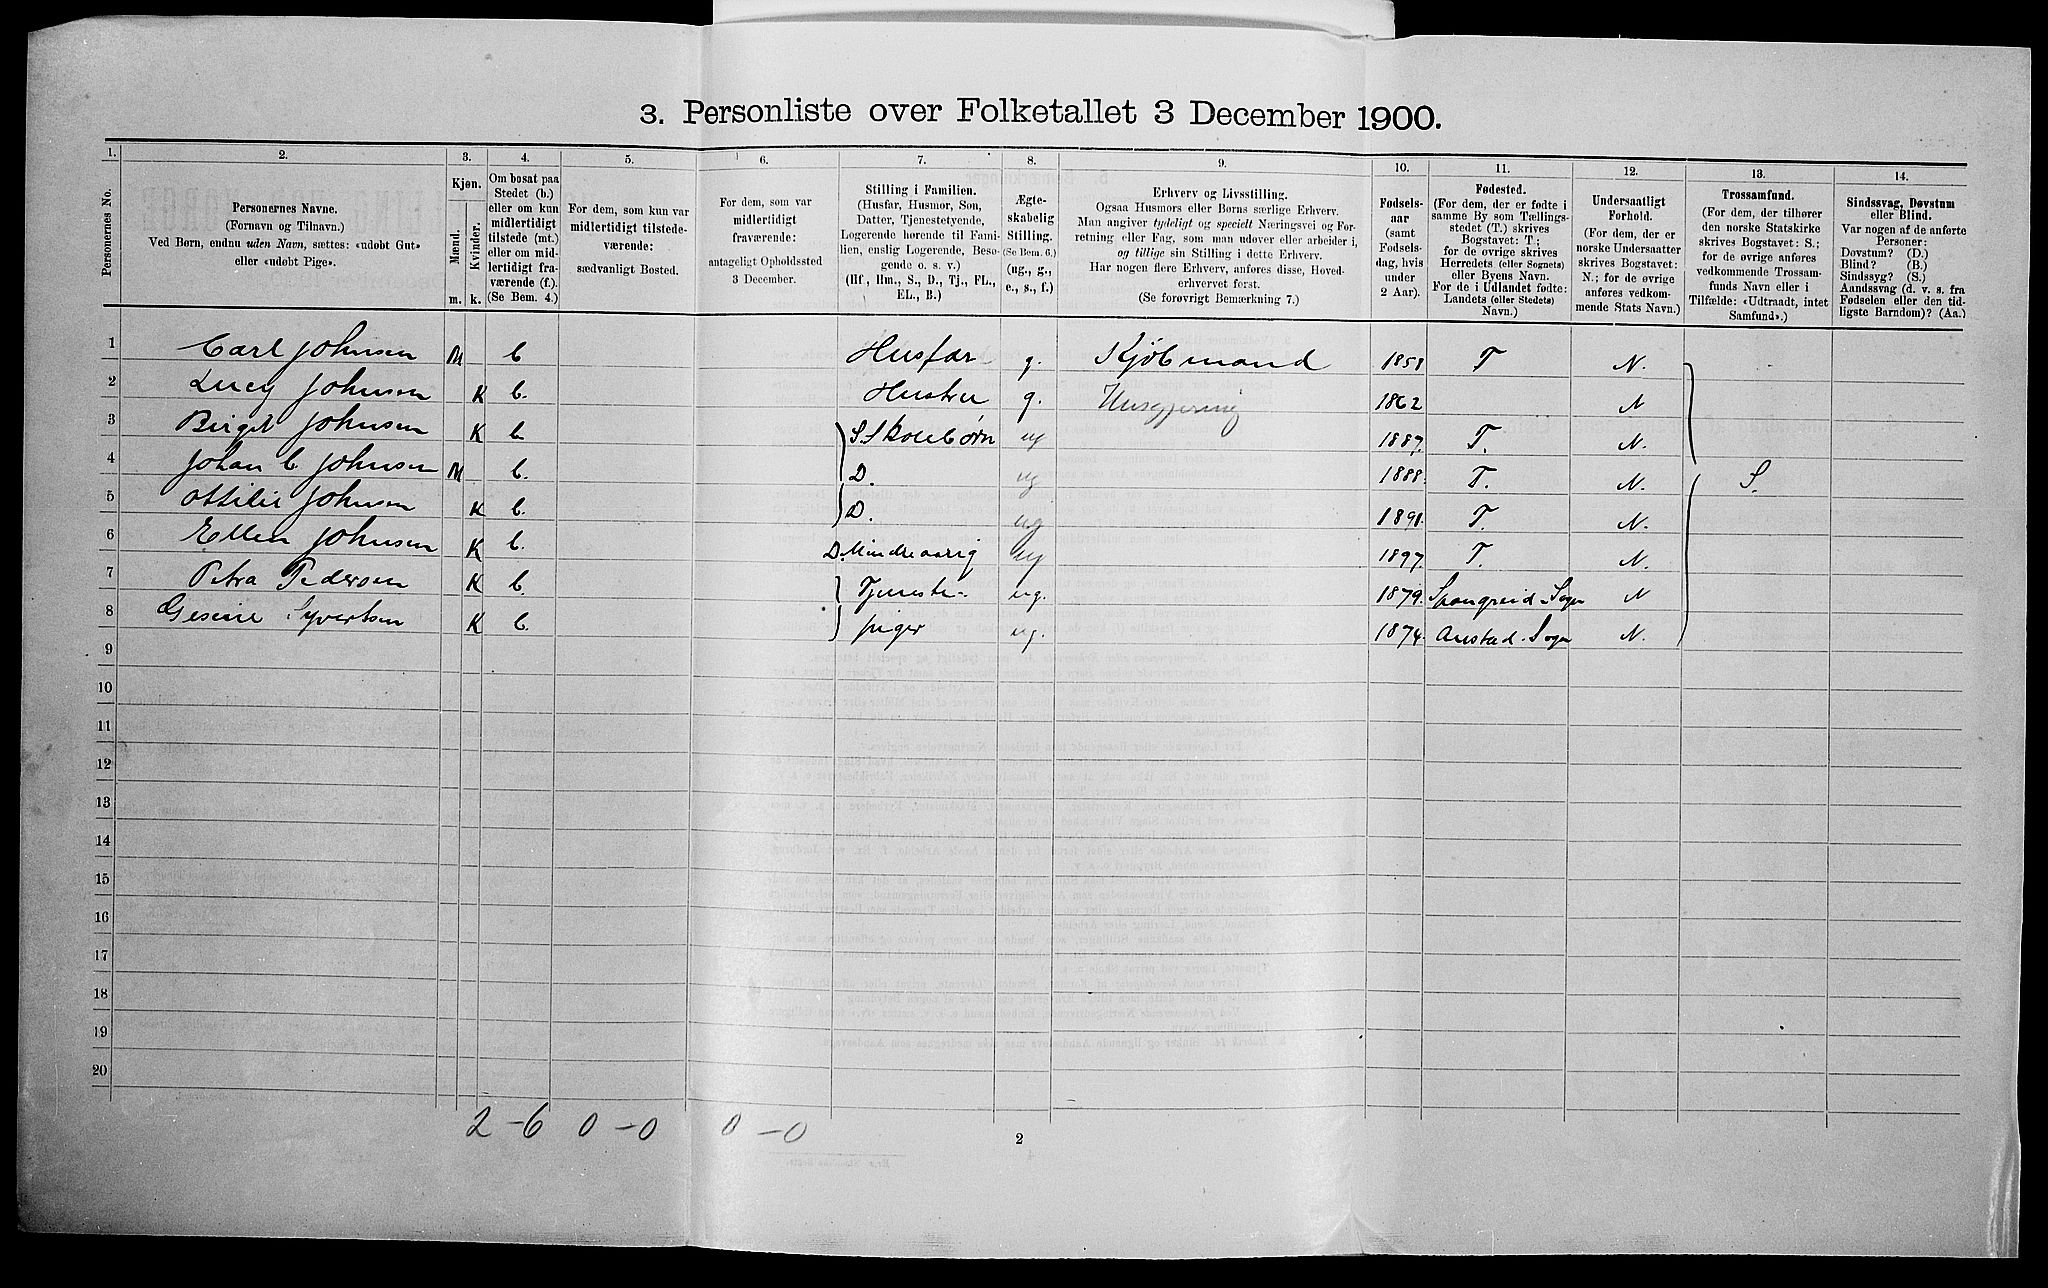 3. Personliste over Folketallet 3 December 1900.
1. 2. 3. 4. 5. 6. 7. 8. 9. 10. 11. 12. 13. 14.
Personernes No.
Personernes Navne.
(Fornavn og Tilnavn.)
Ved Børn, endnu uden Navn, sættes: «udøbt Gut»
eller «udøbt Pige».
Kjøn.
Mænd.
Kvinder.
m. k.
Om bosat paa
Stedet (b.)
eller om kun
midlertidigt
tilstede (mt.)
eller om mid-
lertidigt fra-
værende (f.).
(Se Bem. 4.)
For dem, som kun var
midlertidigt tilstede-
værende:
sædvanligt Bosted.
For dem, som var
midlertidigt
fraværende:
antageligt Opholdssted
3 December.
Stilling i Familien.
(Husfar, Husmor, Søn,
Datter, Tjenestetyende,
Logerende hørende til Fami-
lien, enslig Logerende, Besø-
gende o. s. v.)
(Hf, Hm., S., D., Tj., FL.,
EL., B.)
Ægte-
skabelig
Stilling.
(Se Bem. 6.)
(ug., g.,
e., s., f.)
Erhverv og Livsstilling.
Ogsaa Husmors eller Børns særlige Erhverv.
Man angiver tydeligt og specielt Næringsvei og For-
retning eller Fag, som man udøver eller arbeider i,
og tillige sin Stilling i dette Erhverv.
Har nogen flere Erhverv, anføres disse, Hoved-
erhvervet først.
(Se forøvrigt Bemærkning 7.)
Fødsels-
aar
(samt
Fødsels-
dag, hvis
under
2 Aar).
Fødested.
(For dem, der er fødte i
samme By som Tællings-
stedet (T.) skrives
Bogstavet: T;
for de øvrige skrives
Herredets (eller Sognets)
eller Byens Navn.
For de i Udlandet fødte:
Landets (eller Stedets)
Navn.)
Undersaatligt
Forhold.
(For dem, der er
norske Undersaatter
skrives Bogstavet:
N.; for de øvrige
anføres vedkom-
mende Stats Navn.)
Trossamfund.
(For dem, der tilhører
den norske Statskirke
skrives Bogstavet: S.;
for de øvrige anføres
vedkommende Trossam-
funds Navn eller i
Tilfælde: «Udtraadt, intet
Samfund».)
Sindssvag, Døvstum
eller Blind.
Var nogen af de anførte
Personer:
Døvstum? (D.)
Blind? (B.)
Sindssyg? (S.)
Aandssvag (d. v. s. fra
Fødselen eller den tid-
ligste Barndom)? (Aa.)
1 Carl Johnsen M b Husfar g. Kjøbmand 1858 T N.
2 Lucy Johnsen K b. Hustru g. Husgjerning 1862 N
3 Birgit Johnsen K b S. Skolebørn ug 1887. T. N.
4 Johan C Johnsen M b. D. ug 1888. T. N. S.
5 Ottilie Johnsen K b. D. ug 1891. T. N.
6 Ellen Johnsen K b. D. Mindreaarig ug 1897. T. N.
7 Petra Pedersen K b. Tjeneste- ug. 1879. Spangreid Sogn N
8 Gesine Syvertsen K b. piger ug. 1874. Austad Sogn N.
9
10
11
12
13
14
15
16
17
18
19
20
2-6 0-0 0-0
2